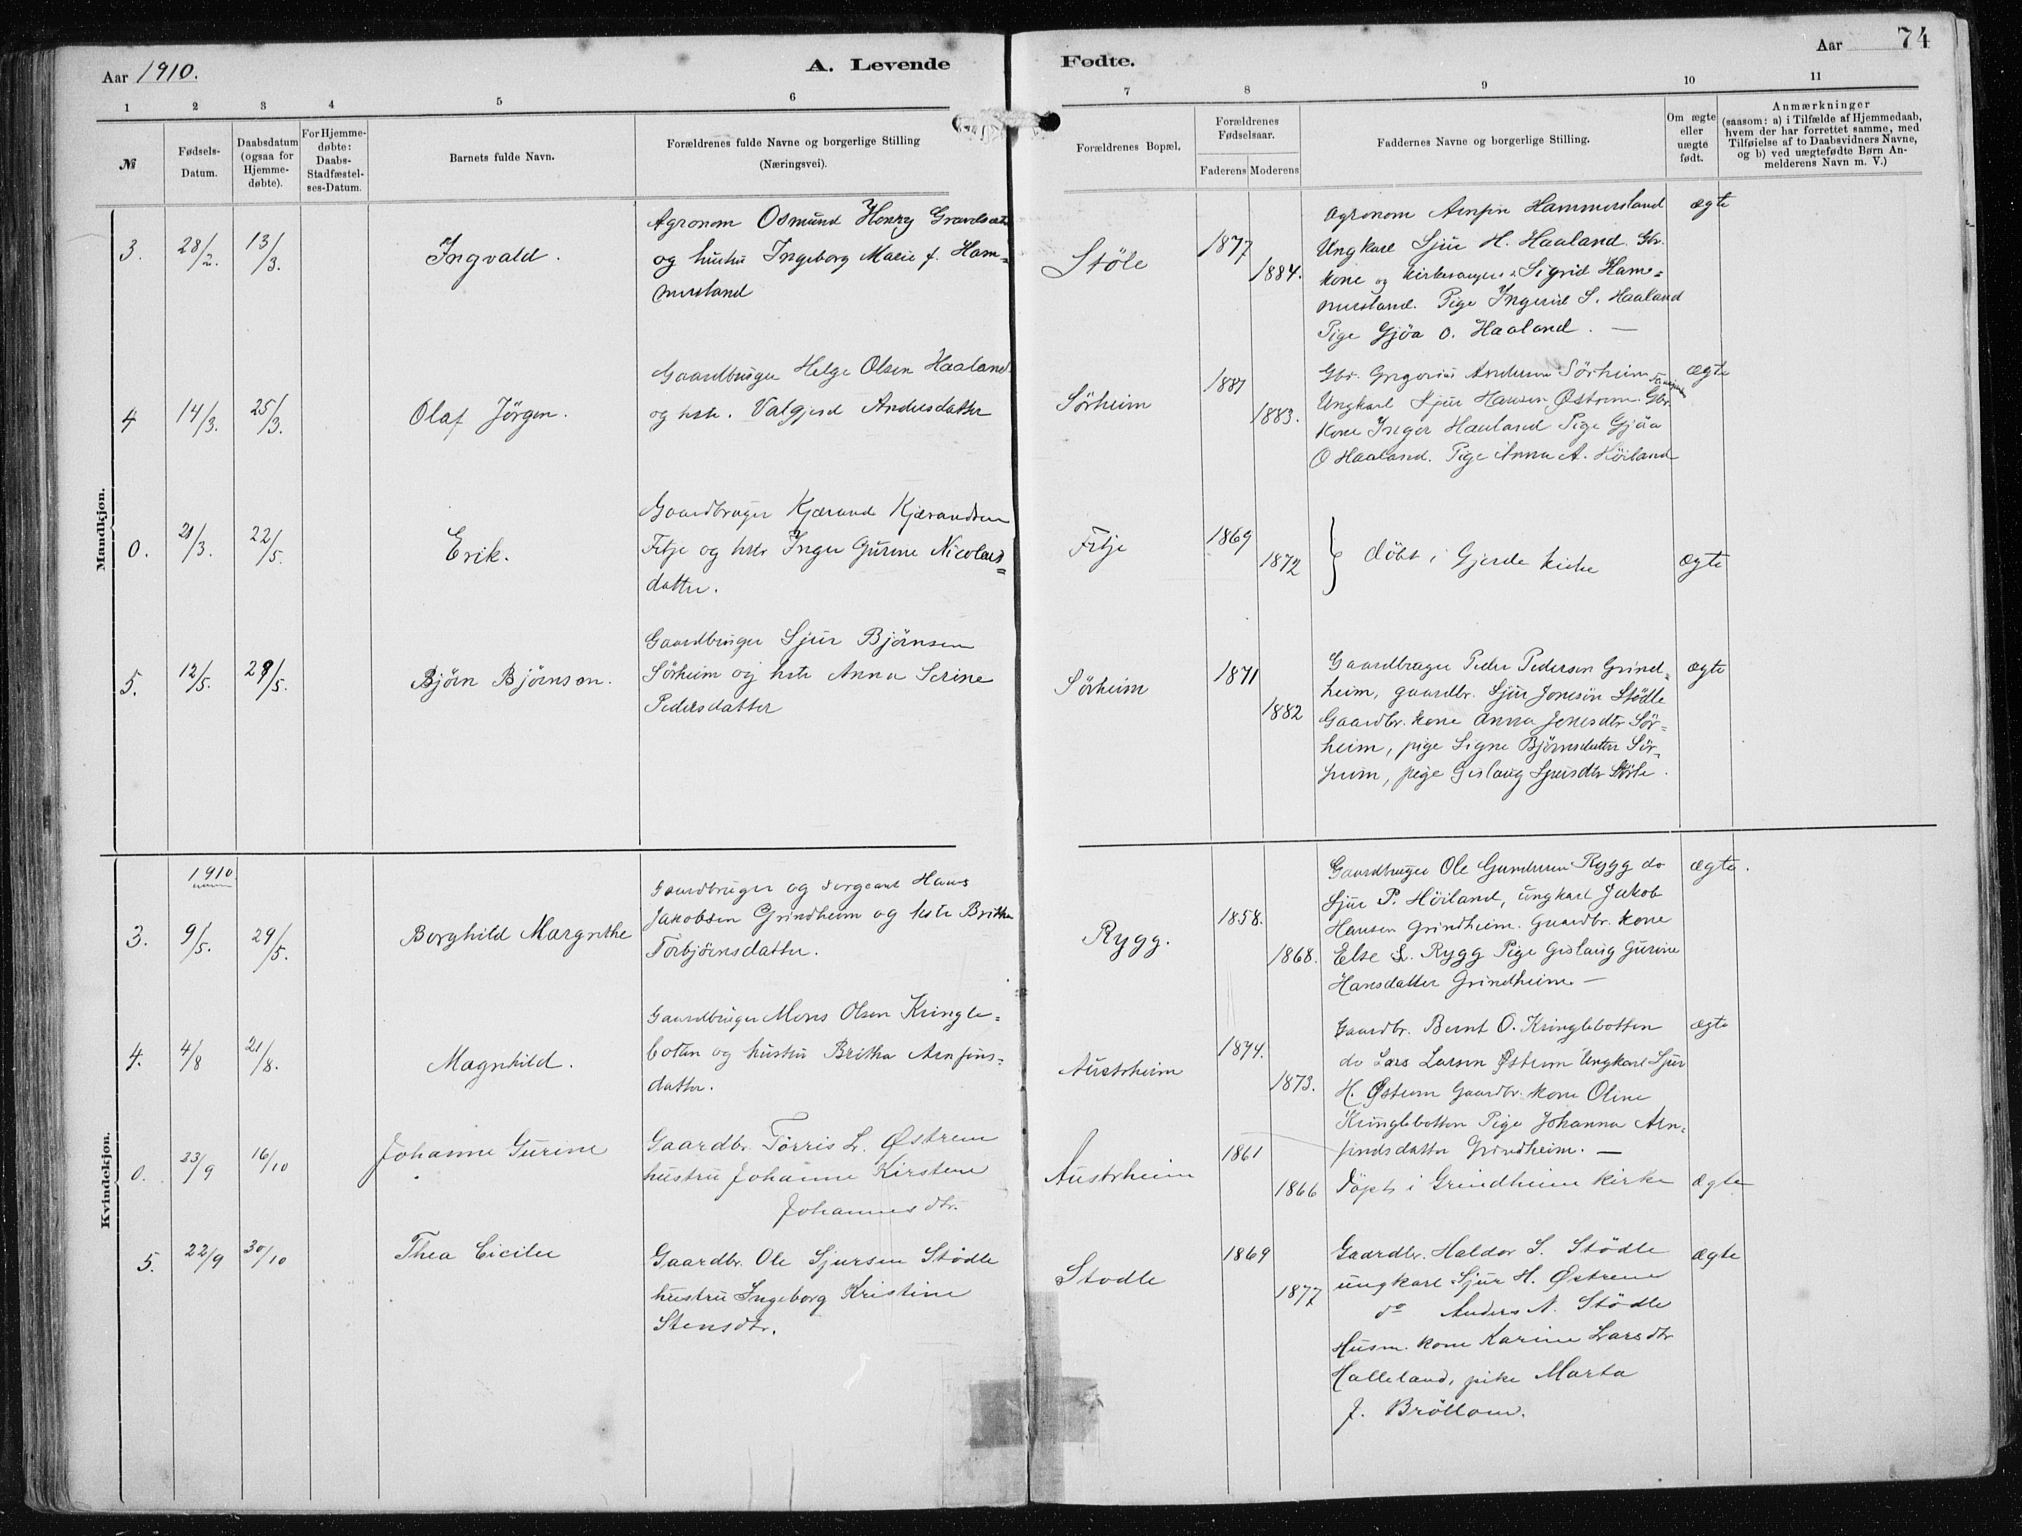 Aar 1910.
A. Levende
Fødte.
Aar
74
1 2 3 4 5 6 7 8 9 10 11
№
Fødsels-
Datum.
Daabsdatum
(ogsaa for
Hjemme-
døbte).
For Hjemme-
døbte:
Daabs-
Stadfæstel-
ses-Datum.
Barnets fulde Navn.
Forældrenes fulde Navne og borgerlige Stilling
(Næringsvei).
Forældrenes Bopæl.
Forældrenes
Fødselsaar.
Faderens Moderens
Faddernes Navne og borgerlige Stilling.
Om ægte
eller
uægte
født.
Anmærkninger
(saasom: a) i Tilfælde af Hjemmedaab,
hvem der har forrettet samme, med
Tilføielse af to Daabsvidners Navne,
og b) ved uægtefødte Børn An-
melderens Navn m. V.)
Mandkjøn.
3. 28/2. 13/3.
Ingvald.
Agronom Osmund Henry
og hustru Ingeborg Marie f. Ham=
mersland
Støle
1877
1884.
Agronom Arnfin Hammersland
Ungkarl Sjur H. Haaland. Gbr.
kone og kirkesangers. Sigrid Ham=
mersland. Pige Ingerid S. Haaland
Pige Gjøa O. Haaland. —
ægte
4 14/3. 25/3.
Olaf Jörgen.
Gaardbruger Helge Olsen Haaland
og hstr. Valgjerd Andersdatter
Sørheim
1881
1883.
Gbr. Gregorius Andersen Sørheim
Ungkarl Sjur Hansen Østrem. Gbr.
kone Inger Haaland Pige Gjøa
O Haaland. Pige Anna A. Høiland
ægte
0. 21/3. 22/5.
Erik.
Gaardbruger Kjærand Kjærandsen
Fitje og hstr Inger Gurine Nicolais=
datter.
Fitje
1869
1872
døbt i Gjerde kirke
ægte
5. 12/5. 29/5.
Bjørn Bjørnsen.
Gaardbruger Sjur Bjørnsen
Sørheim og hstr Anna Serine
Pedersdatter
Sørheim
1871
1882
Gaardbruger Peder Pedersen Grind=
heim, gaardbr. Sjur Jonesøn Stødle
Gaardbr. kone Anna Jonesdtr Sør=
heim, pige Signe Bjørnsdatter Sør=
heim, pige Gislaug Sjursdtr Støle.
ægte
Kvindekjøn.
1910
3. 9/5. 29/5.
Borghild Margrethe
Gaardbruger og sergeant Hans
Jakobsen Grindheim og hstr Britha
Torbjørnsdatter.
Rygg.
1858.
1868.
Gaardbruger Ole Gundersen Rygg do
Sjur P. Høiland, ungkarl Jakob
Hansen Grindheim. Gaardbr. kone
Else S. Rygg Pige Gislaug Gurine
Hansdatter Grindheim. —
ægte.
4. 4/8 21/8.
Magnhild.
Gaardbruger Mons Olsen Kringle=
botten og hustru Britha Arnfins=
datter.
Austrheim
1874.
1873.
Gaardbr. Bernt O. Kringlebotten
do Lars Larsen Østrem Ungkarl Sjur
H. Østrem Gaardbr. kone Oline
Kringlebotten Pige Johanna Arn=
findsdatter Grindheim. —
ægte
0. 23/9 16/10
Johanne Gurine
Gaardbr. Tørris L. Østrem
hustru Johanne Kirstene
Johannesdtr.
Austrheim
1861
1866
Døpt i Grindheim kirke
ægte
5. 22/9 30/10
Thea Cicilie
Gaardbr. Ole Sjursen Stødle
hustru Ingeborg Kristine
Stensdtr.
Stodle
1869
1877
Gaardbr. Haldor S. Stødle
ungkarl Sjur H. Østrem
do Anders N. Stødle
Husm. kone Karine Larsdtr
Halleland, pike Marta
J. Bröllom.
ægte